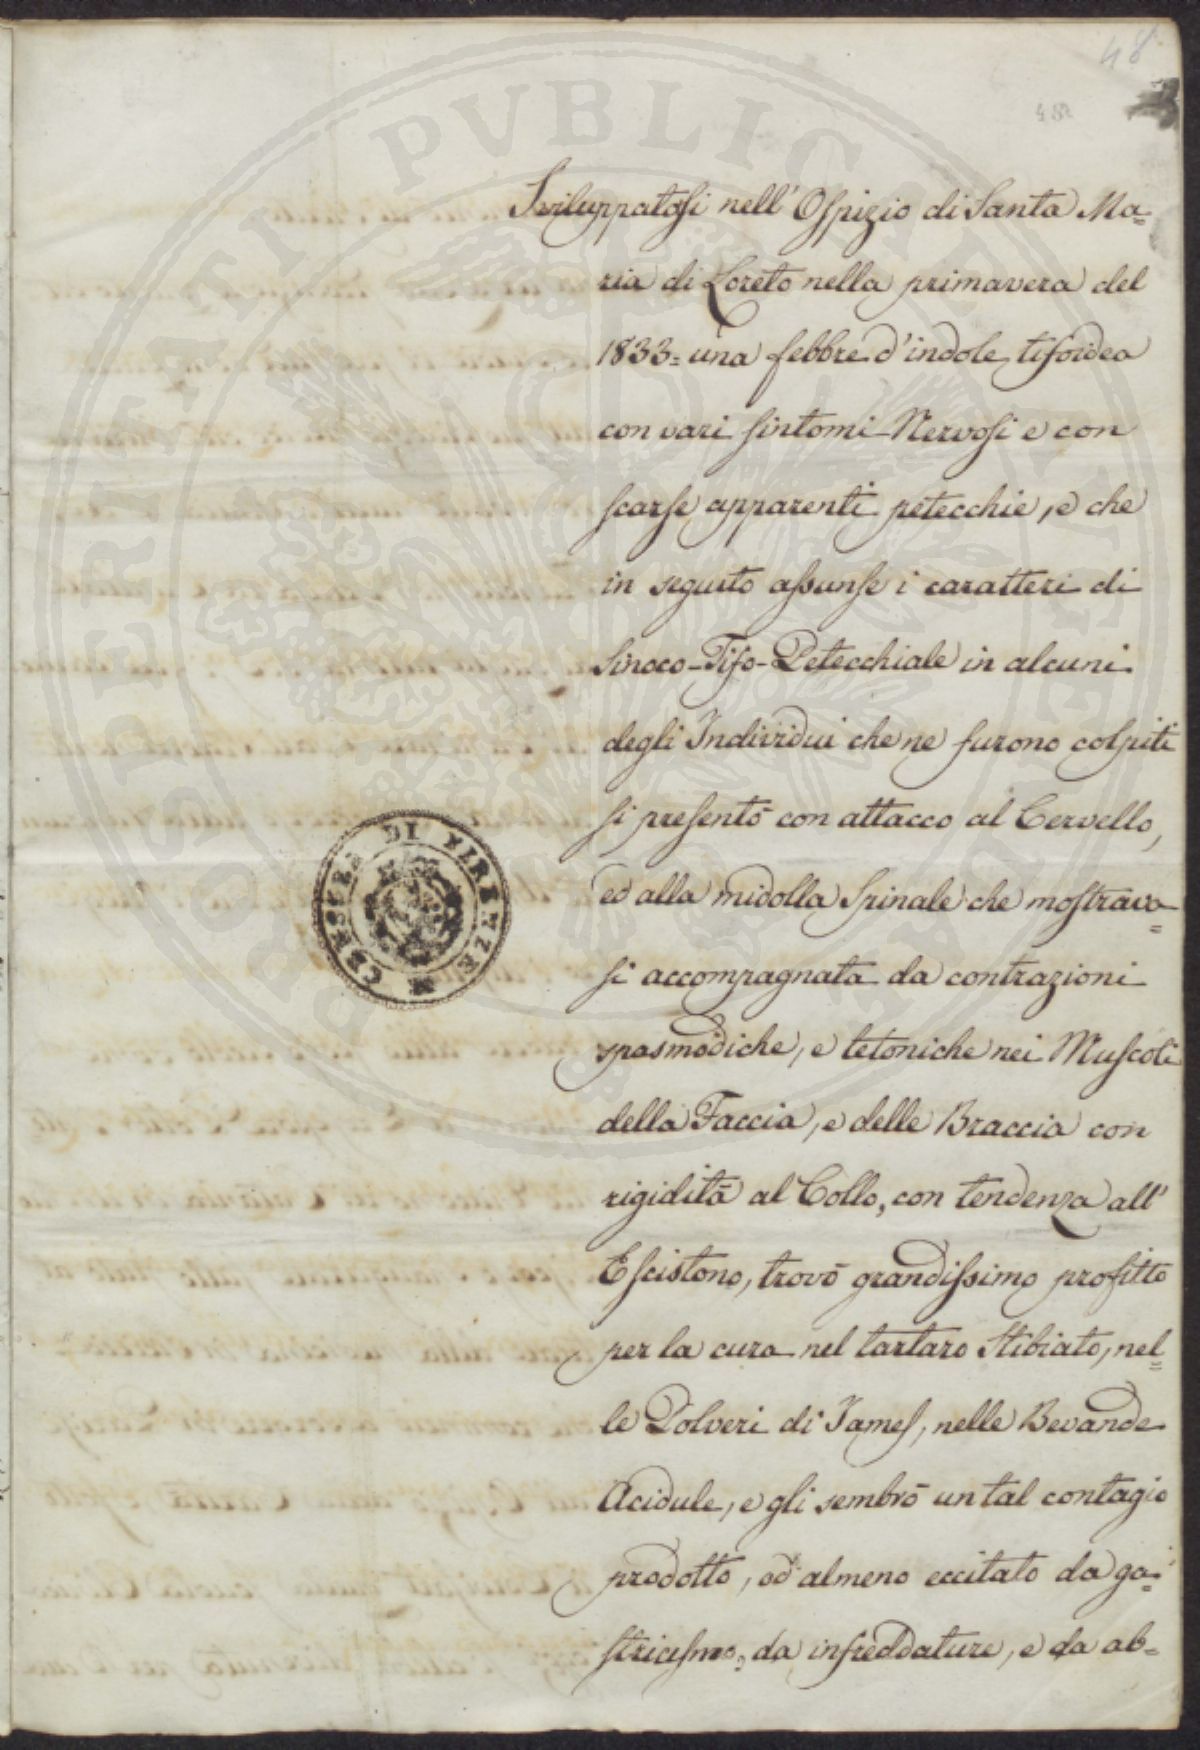 48
Sviluppatosi nell' Ospizio di Santa Ma=
ria di Loreto nella primavera del
1833= una febbre d'indole tifoidea
con vari sintomi Nervosi e con
scarse apparenti petecchie, e che
in seguito assunse i caratteri di
Sinoco-Tifo-Petecchiale in alcuni
degli Individui che ne furono colpiti
si presentò con attacco al Cervello,
ed alla midolla Spinale che mostrava=
si accompagnata da contrazioni
spasmodiche, e tetoniche nei Muscoli
della Faccia, e delle Braccia con
rigidità al Collo, con tendenza all'
Escistono, trovò grandissimo profitto
per la cura nel tartaro Stibiato, nel=
le Polveri di James, nelle Bevande
Acidule, e gli sembrò un tal contagio
prodotto, od almeno eccitato da ga=
stricismo, da infreddature, e da ab=
CENSURA DI FIRENZE
PROSPERITATI PUBLICAE